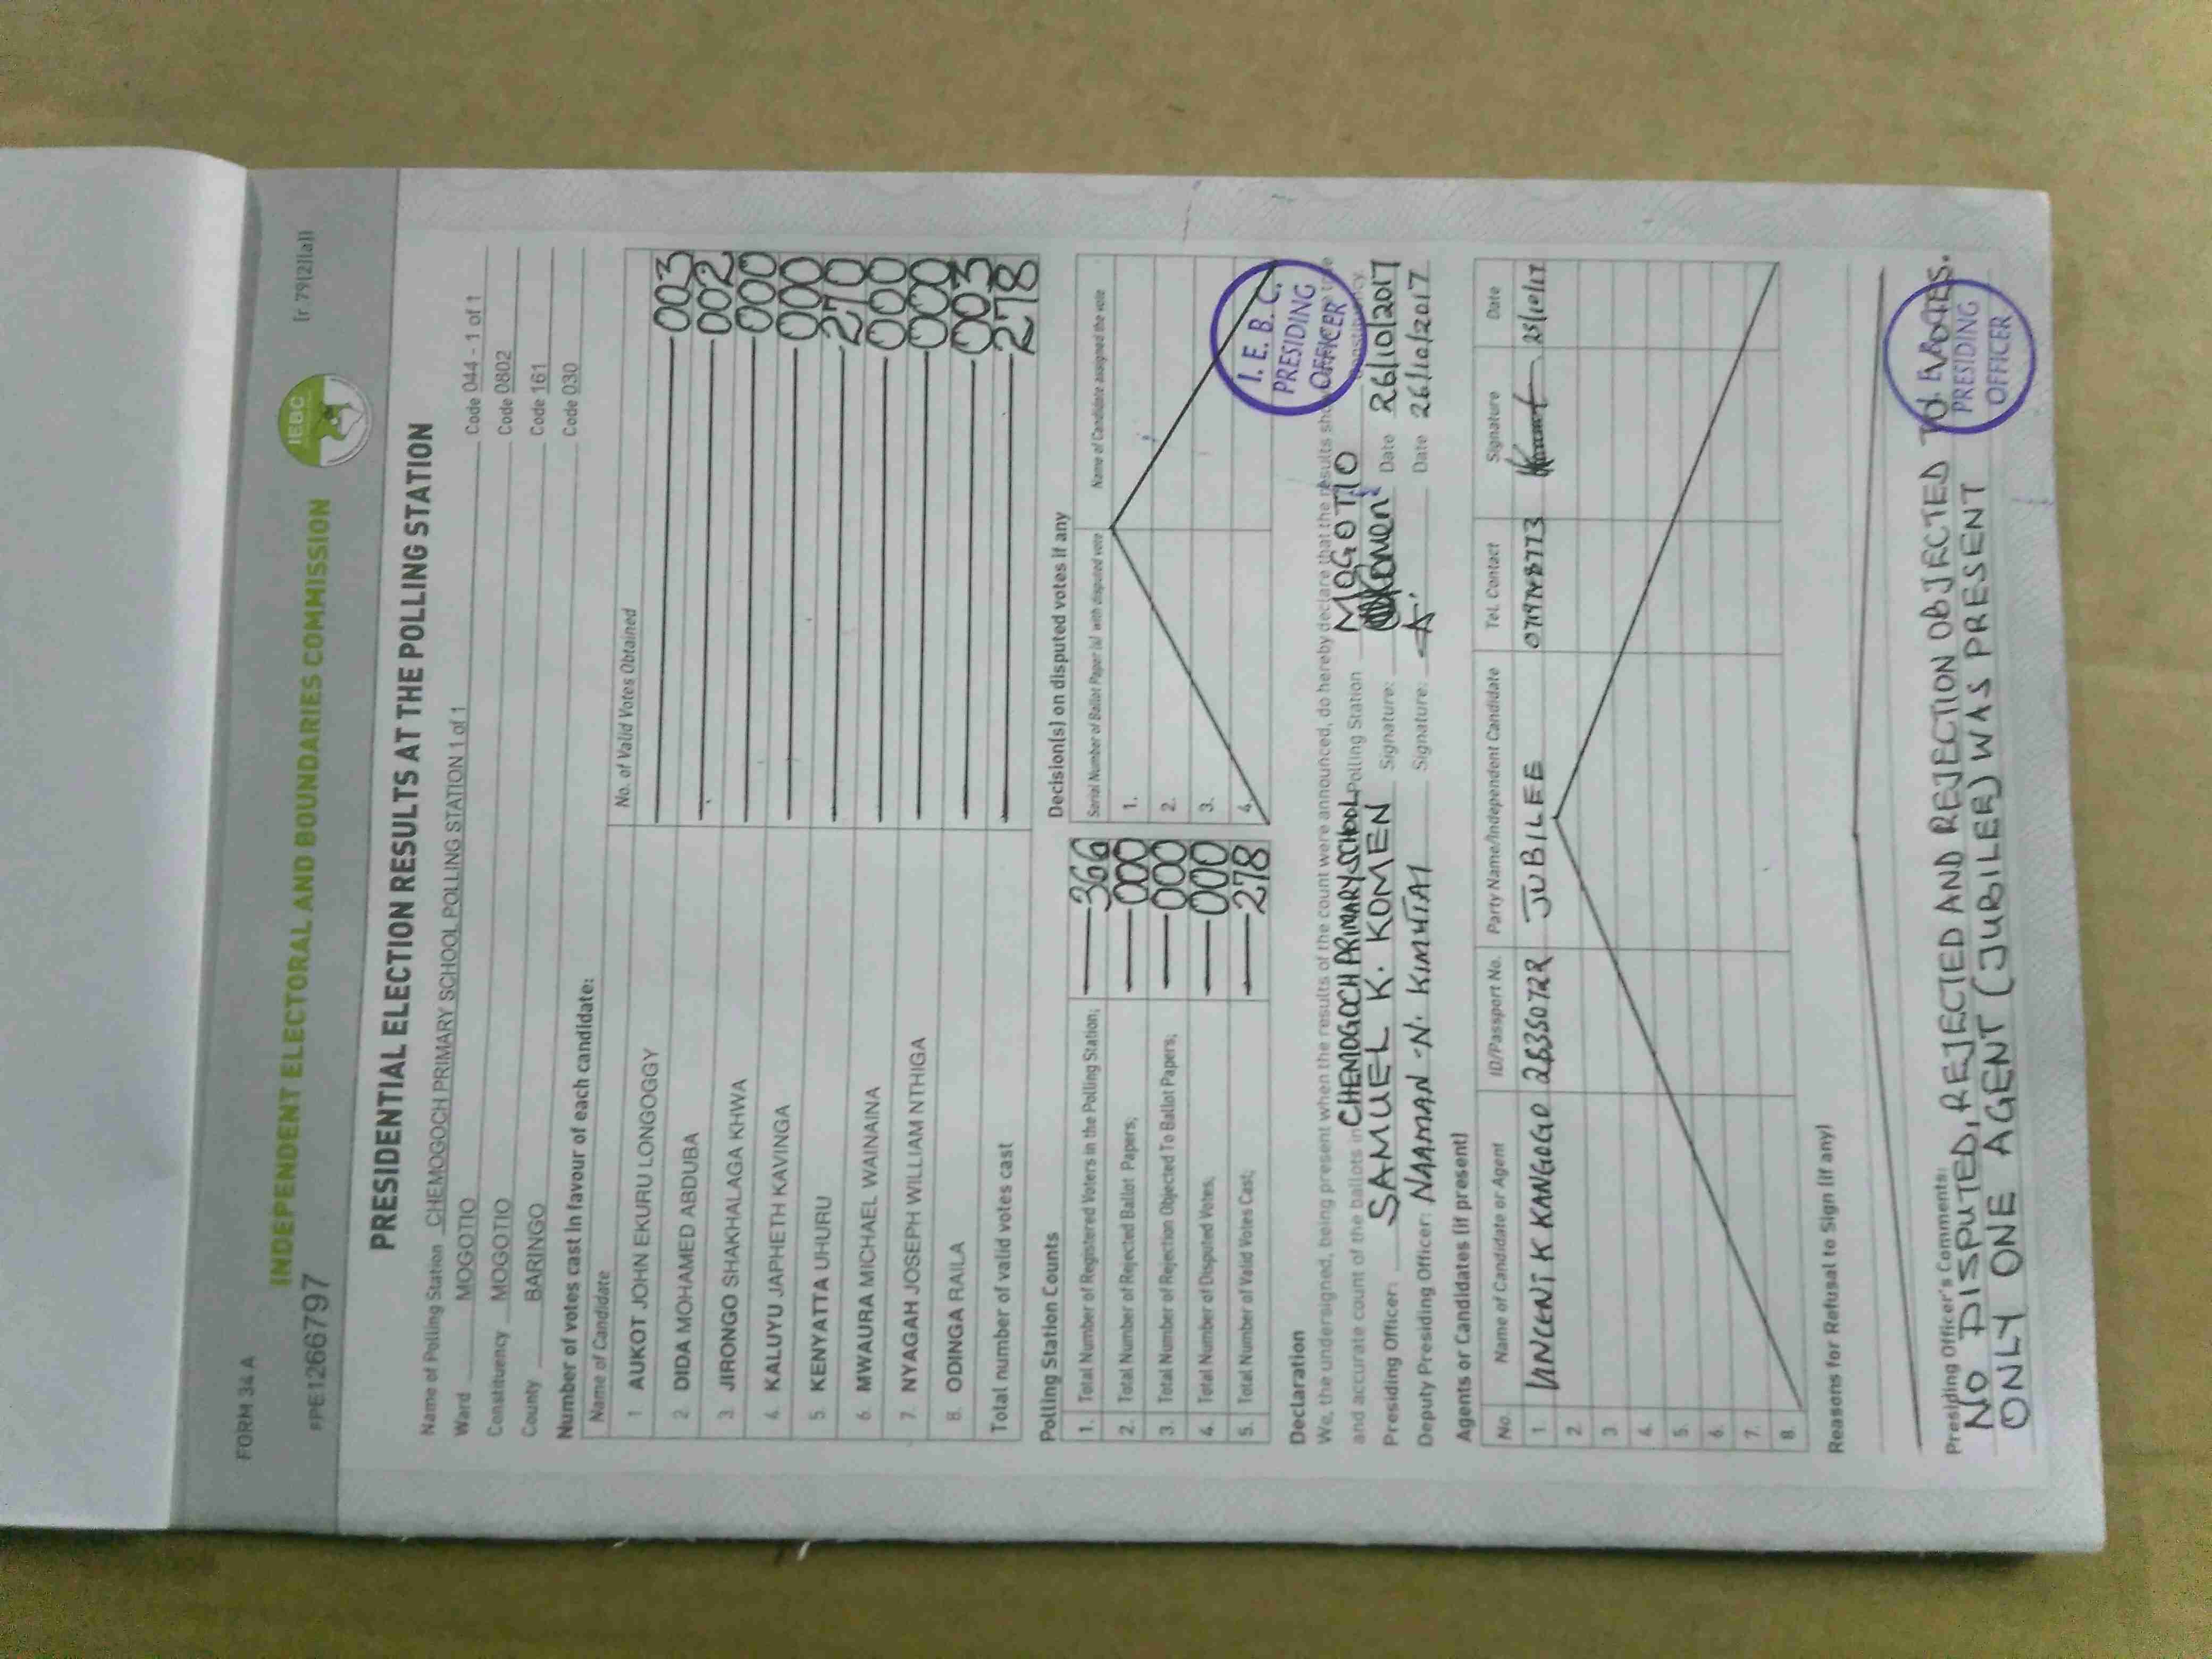 FORM 34 A
[r 79(2)(a)]
INDEPENDENT ELECTORAL AND BOUNDARIES COMMISSION
IEBC
PPE1266797
PRESIDENTIAL ELECTION RESULTS AT THE POLLING STATION
Name of Polling Station CHEMOGOCH PRIMARY SCHOOL POLLING STATION 1 of 1 Code 044 - 1 of 1
Ward MOGOTIO Code 0802
Constituency MOGOTIO Code 161
County BARINGO Code 030
Number of votes cast in favour of each candidate:
Name of Candidate No. of Valid Votes Obtained
1 AUKOT JOHN EKURU LONGOGGY 003
2. DIDA MOHAMED ABDUBA 002
3. JIRONGO SHAKHALAGA KHWA 000
4. KALUYU JAPHETH KAVINGA 000
5. KENYATTA UHURU 270
6. MWAURA MICHAEL WAINAINA 000
7. NYAGAH JOSEPH WILLIAM NTHIGA 000
8. ODINGA RAILA 003
Total number of valid votes cast 278
Polling Station Counts
1. Total Number of Registered Voters in the Polling Station; 366
2. Total Number of Rejected Ballot Papers; 000
3. Total Number of Rejection Objected To Ballot Papers; 000
4. Total Number of Disputed Votes; 000
5. Total Number of Valid Votes Cast; 278
Decision(s) on disputed votes if any
Serial Number of Ballot Paper (s) with disputed vote Name of Candidate assigned the vote
1.
2.
3.
4.
I. E. B. C.
PRESIDING
OFFICER
Declaration
We, the undersigned, being present when the results of the count were announced, do hereby declare that the results
and accurate count of the ballots in CHEMOGOCH PRIMARY SCHOOL Polling Station MOGOTIO
Presiding Officer: SAMUEL K. KOMEN Signature: Date 26/10/2017
Deputy Presiding Officer: NAAMAN N. KIMUTAI Signature: Date 26/10/2017
Agents or Candidates (if present)
No. Name of Candidate or Agent ID/Passport No. Party Name/Independent Candidate Tel. Contact Signature Date
1. VINCENT K KANGOGO JUBILEE
2.
3.
4.
5.
6.
7.
8.
Reasons for Refusal to Sign (if any)
Presiding Officer's Comments:
NO DISPUTED, REJECTED AND REJECTION OBJECTED TO
ONLY ONE AGENT (JUBILEE) WAS PRESENT
PRESIDING
OFFICER